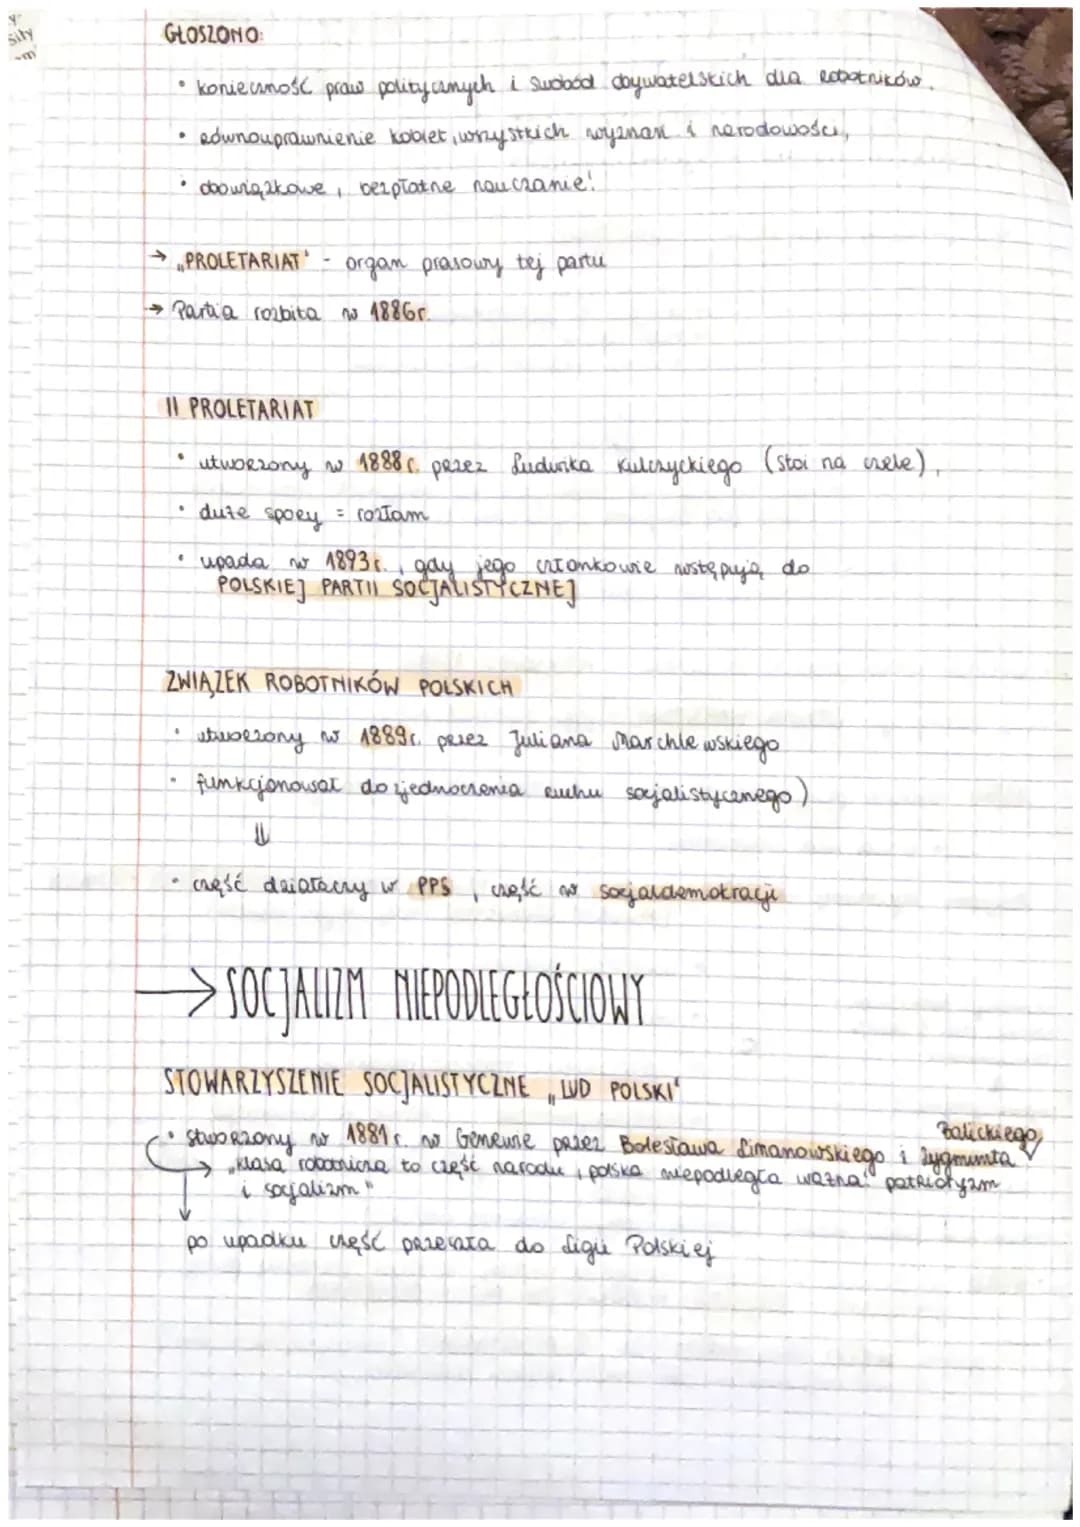 GŁOSZONO:
• konieczność praw politycznych i swobód obywatelskich dla robotników,
• równouprawnienie kobiet, wszystkich wyznań i narodowości,
• obowiązkowe, bezpłatne nauczanie!
→ „PROLETARIAT" - organ prasowy tej partii
→ Partia rozbita w 1886r.
II PROLETARIAT
• utworzony w 1888r. przez Ludwika Kulczyckiego (stoi na czele),
• duże spory = rozłam
• upada w 1893r., gdy jego członkowie wstępują do
POLSKIEJ PARTII SOCJALISTYCZNEJ
ZWIĄZEK ROBOTNIKÓW POLSKICH
• utworzony w 1889r. przez Juliana Marchlewskiego
• funkcjonował do zjednoczenia ruchu socjalistycznego)
⇓
• część działaczy w PPS, część w socjaldemokracji
→ SOCJALIZM NIEPODLEGŁOŚCIOWY
STOWARZYSZENIE SOCJALISTYCZNE „LUD POLSKI"
Balickiego
• stworzony w 1881r. w Genewie przez Bolesława Limanowskiego i Zygmunta
→ „klasa robotnicza to część narodu, polska niepodległa ważna! patriotyzm
i socjalizm"
po upadku część przeszła do Ligii Polskiej